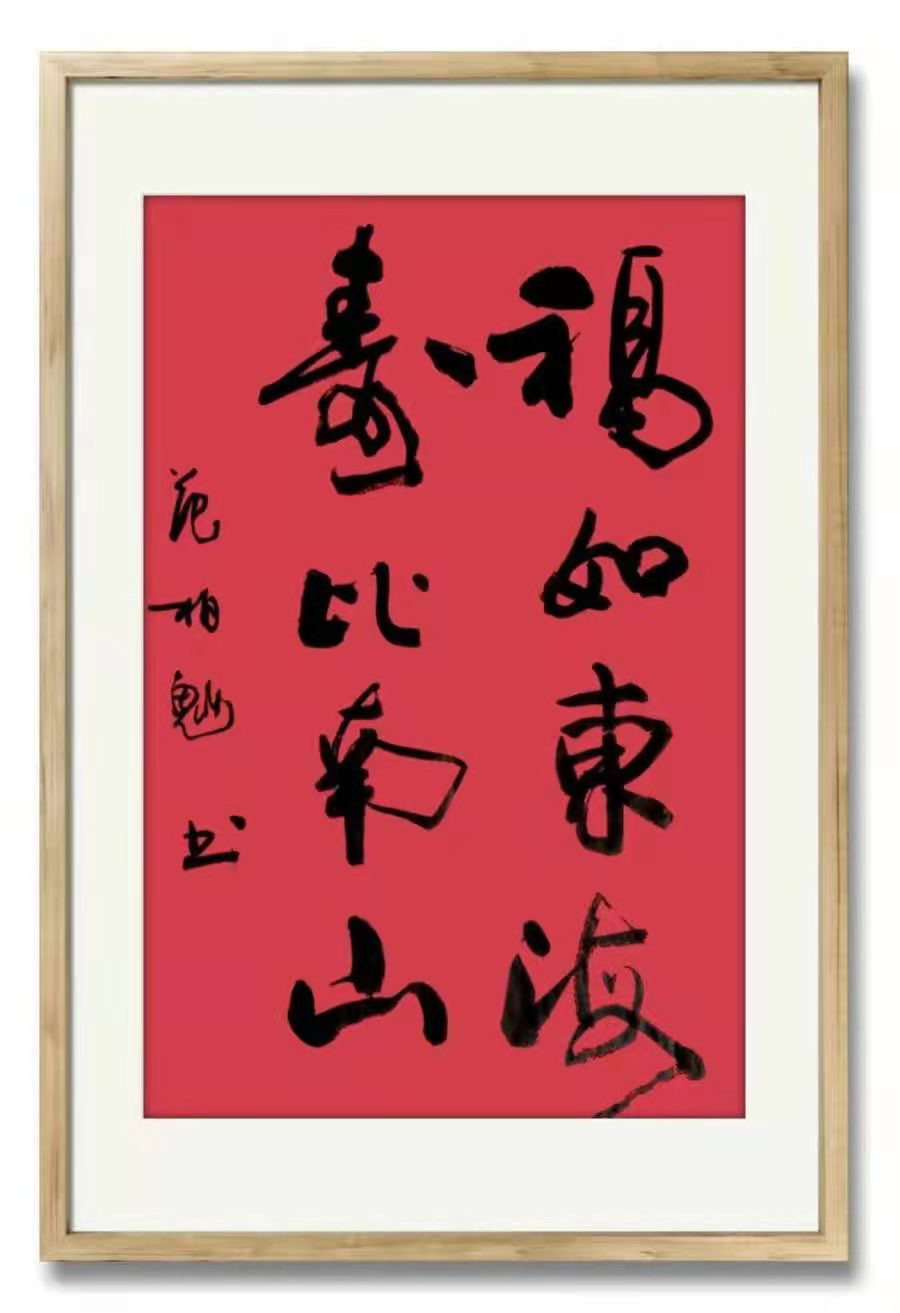 福如東海
壽比南山
范相魁 书